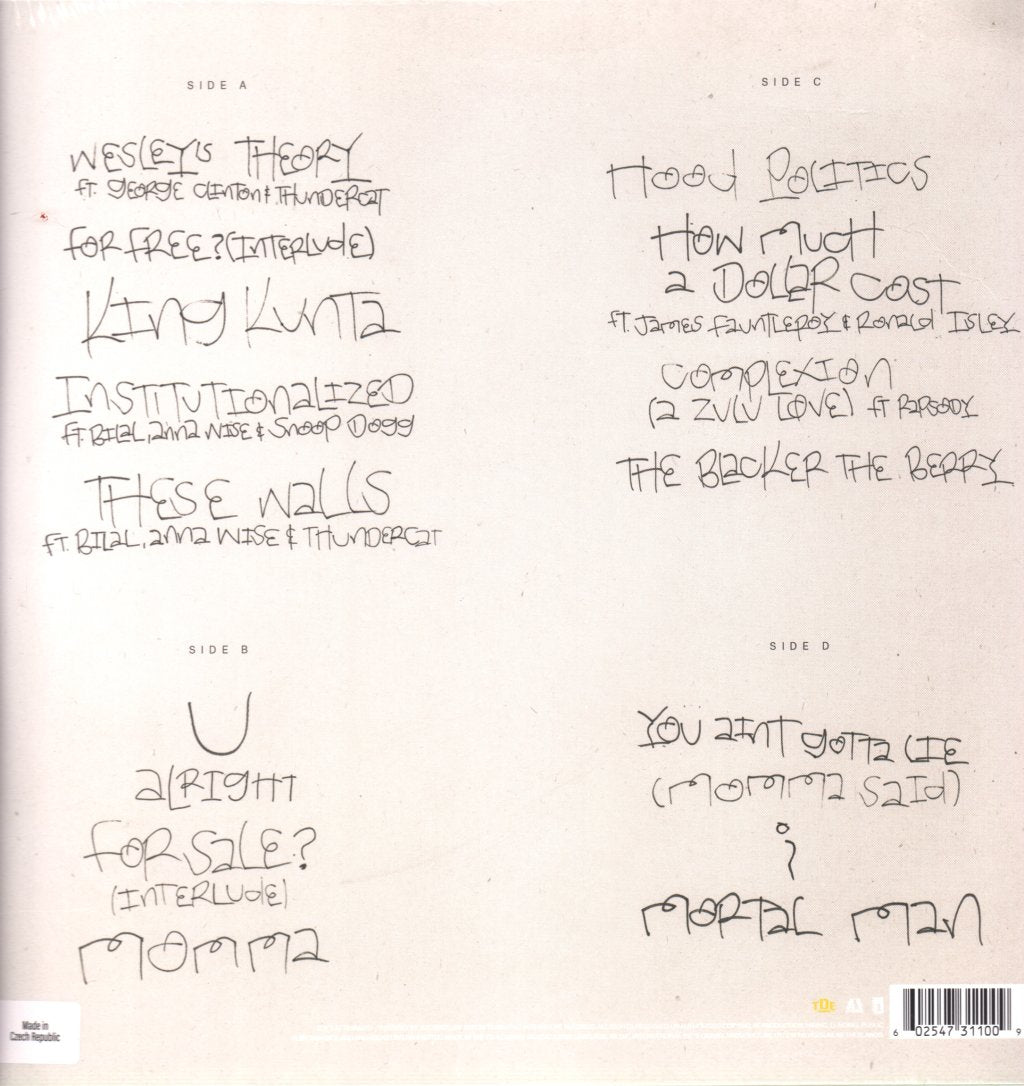 SIDE A
WESLEY'S THEORY
ft. GEORGE CLINTON & THUNDERCAT
FOR FREE? (INTERLUDE)
KING KUNTA
INSTITUTIONALIZED
ft. BILAL, ANNA WISE & SNOOP DOGG
THESE WALLS
ft. BILAL, ANNA WISE & THUNDERCAT
SIDE B
U
ALRIGHT
FOR SALE?
(INTERLUDE)
MOMMA
SIDE C
HOOD POLITICS
HOW MUCH
A DOLLAR COST
ft. JAMES FAUNTLEROY & RONALD ISLEY
COMPLEXION
(A ZULU LOVE) ft RAPSODY
THE BLACKER THE BERRY
SIDE D
YOU AINT GOTTA LIE
(MOMMA SAID)
i
MORTAL MAN
Made in
Czech Republic
TDE
6 02547 31100 9